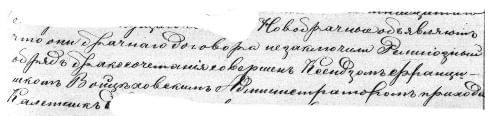 Новобрачные объявляютъ
что они брачнаго договора незаключили Религіозный
обрядъ бракосочетанія совершенъ Ксендзомъ Франци-
шкомъ Войцѣховскимъ Администраторомъ прихода